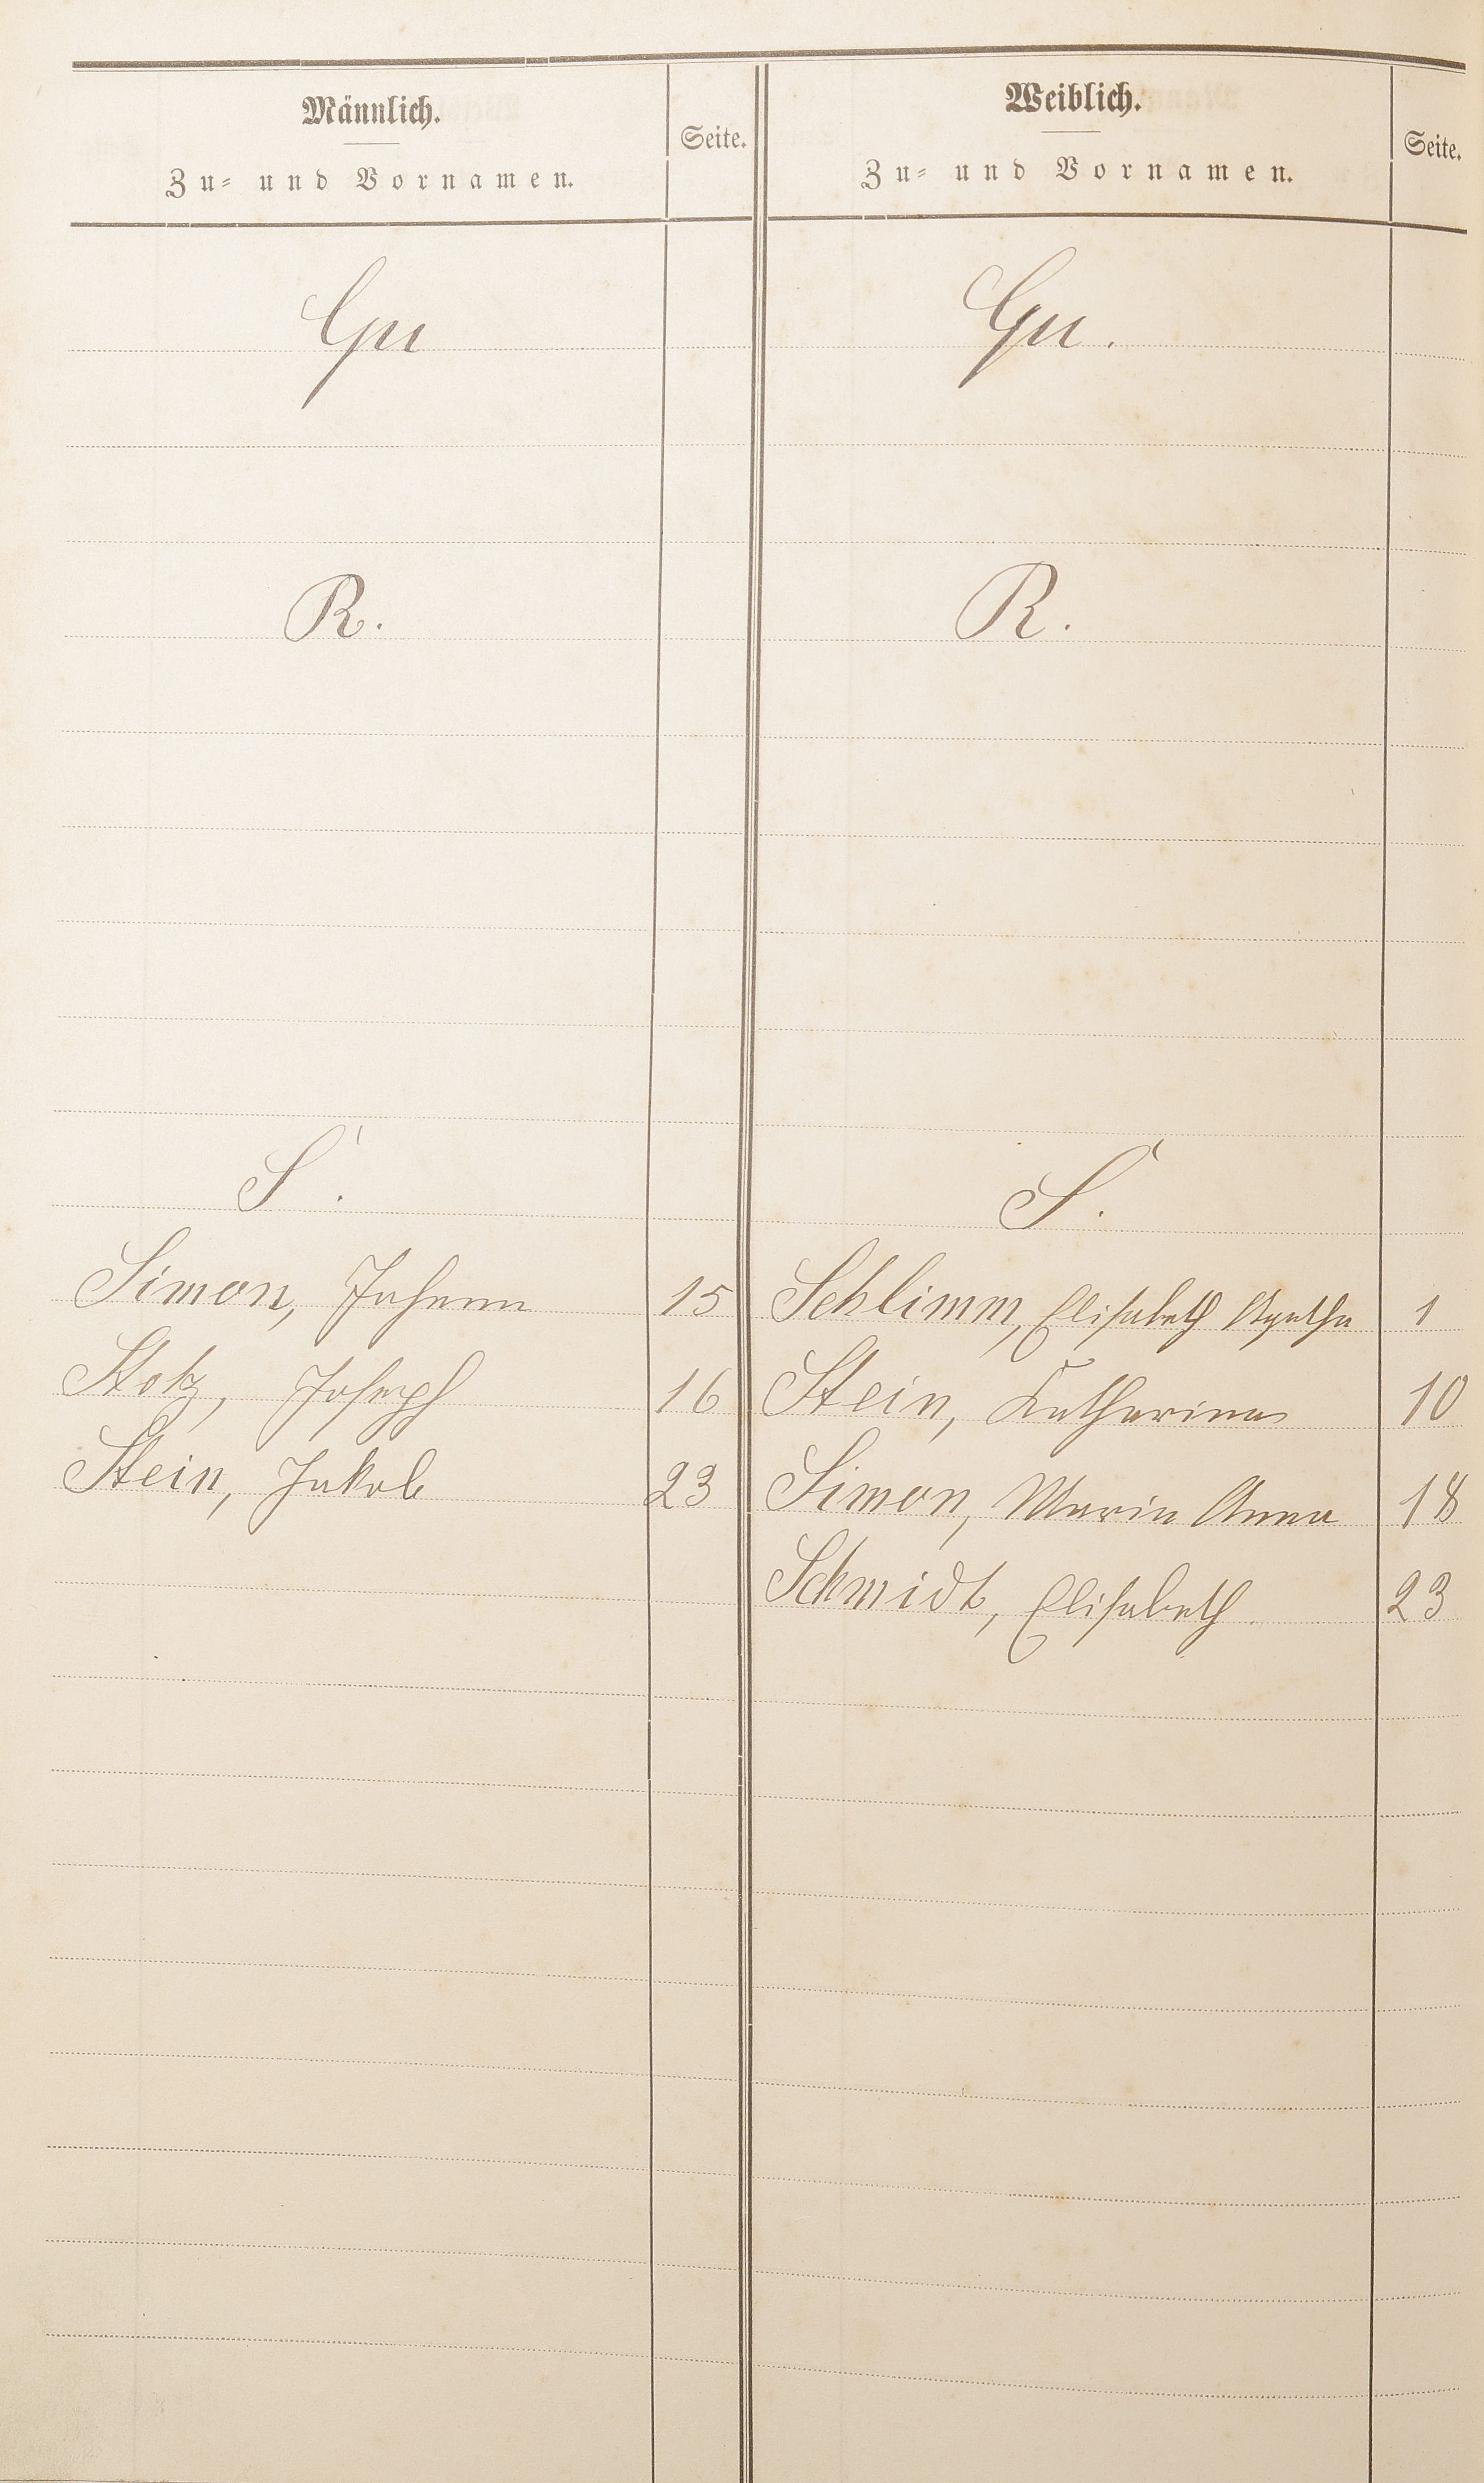 Männlich.
Zu- und Vornamen.
Seite.
Qu
R.
S.
Simon, Johann 15
Stotz, Joseph 16
Stein, Jakob 23
Weiblich.
Zu- und Vornamen.
Seite.
Qu.
R.
S.
Schlimm, Elisabeth Agatha 1
Stein, Katharina 10
Simon, Maria Anna 18
Schmidt, Elisabeth 23